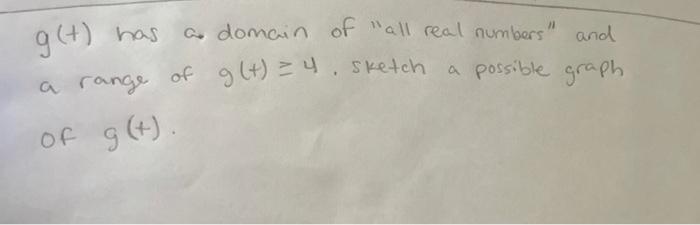 g(t) has a domain of "all real numbers" and
a range of g(t) ≥ 4. sketch a possible graph
of g(t).